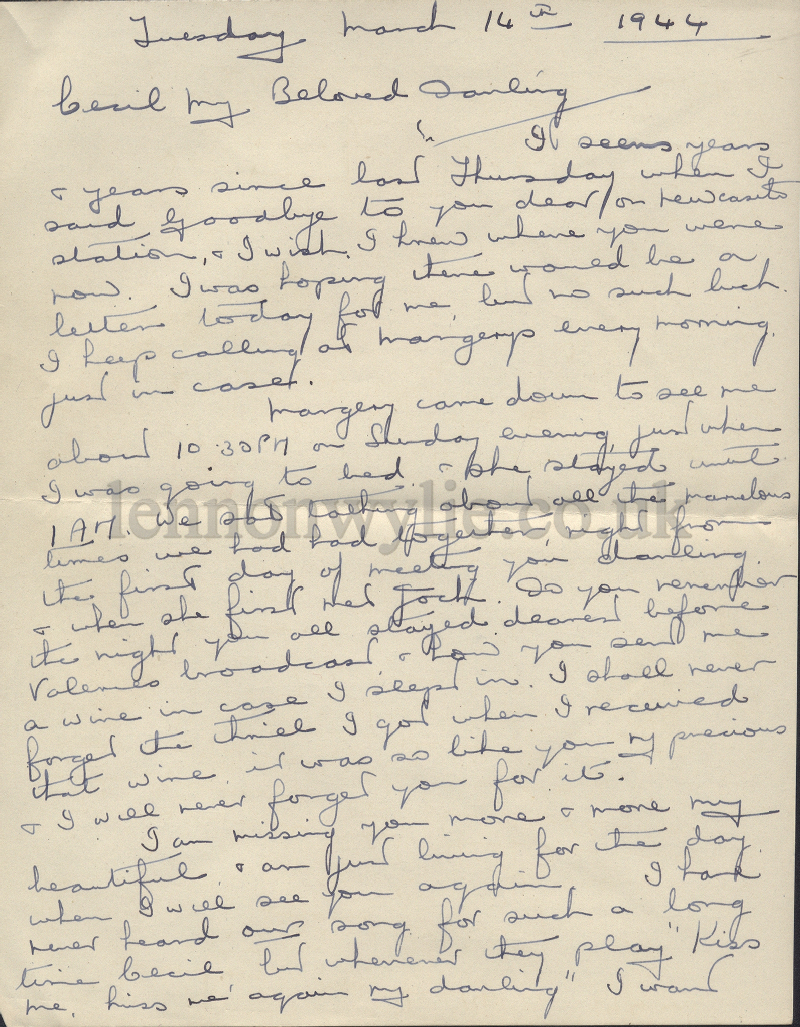 Tuesday March 14th 1944
Cecil My Beloved Darling
It seems years
& years since last Thursday when I
said Goodbye to you dear, on Newcastle
station, & I wish I knew where you were
now. I was hoping there would be a
letter today for me, but no such luck.
I keep calling at Margerys every morning
just in case.
Margery came down to see me
about 10.30 PM on Sunday evening, just when
I was going to bed. & she stayed until
1 AM. We sat talking about all the marvelous
times we had had together, right from
the first day of meeting you darling.
& when she first met Jock. Do you remember
the night you all stayed dearest before
Valeries broadcast & how you sent me
a wire in case I slept in. I shall never
forget the thrill I got when I received
that wire, it was so like you my precious
& I will never forget you for it.
I am missing you more & more my
beautiful, & am just living for the day
when I will see you again I have
never heard our song for such a long
time Cecil but whenever they play "Kiss
me, kiss me again my darling" I want
lennonwylie.co.uk